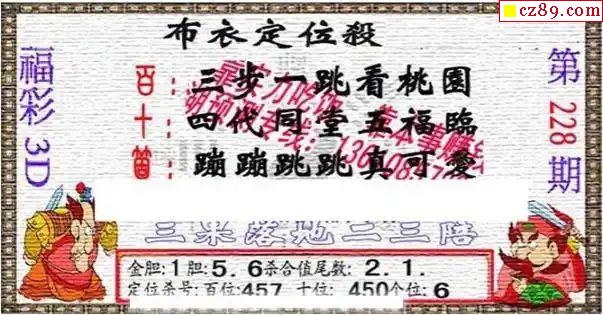 cz89.com
布衣定位殺
福彩3D
第228期
百：三步一跳看桃園
十：四代同堂五福臨
笛：蹦蹦跳跳真可愛
三果落地二三陪
金胆:1胆:5.6杀合值尾数:2.1.
定位杀号:百位:457 十位:450个位:6